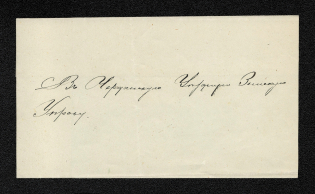 Въ Чердынскую Уѣздную Земскую
Управу.